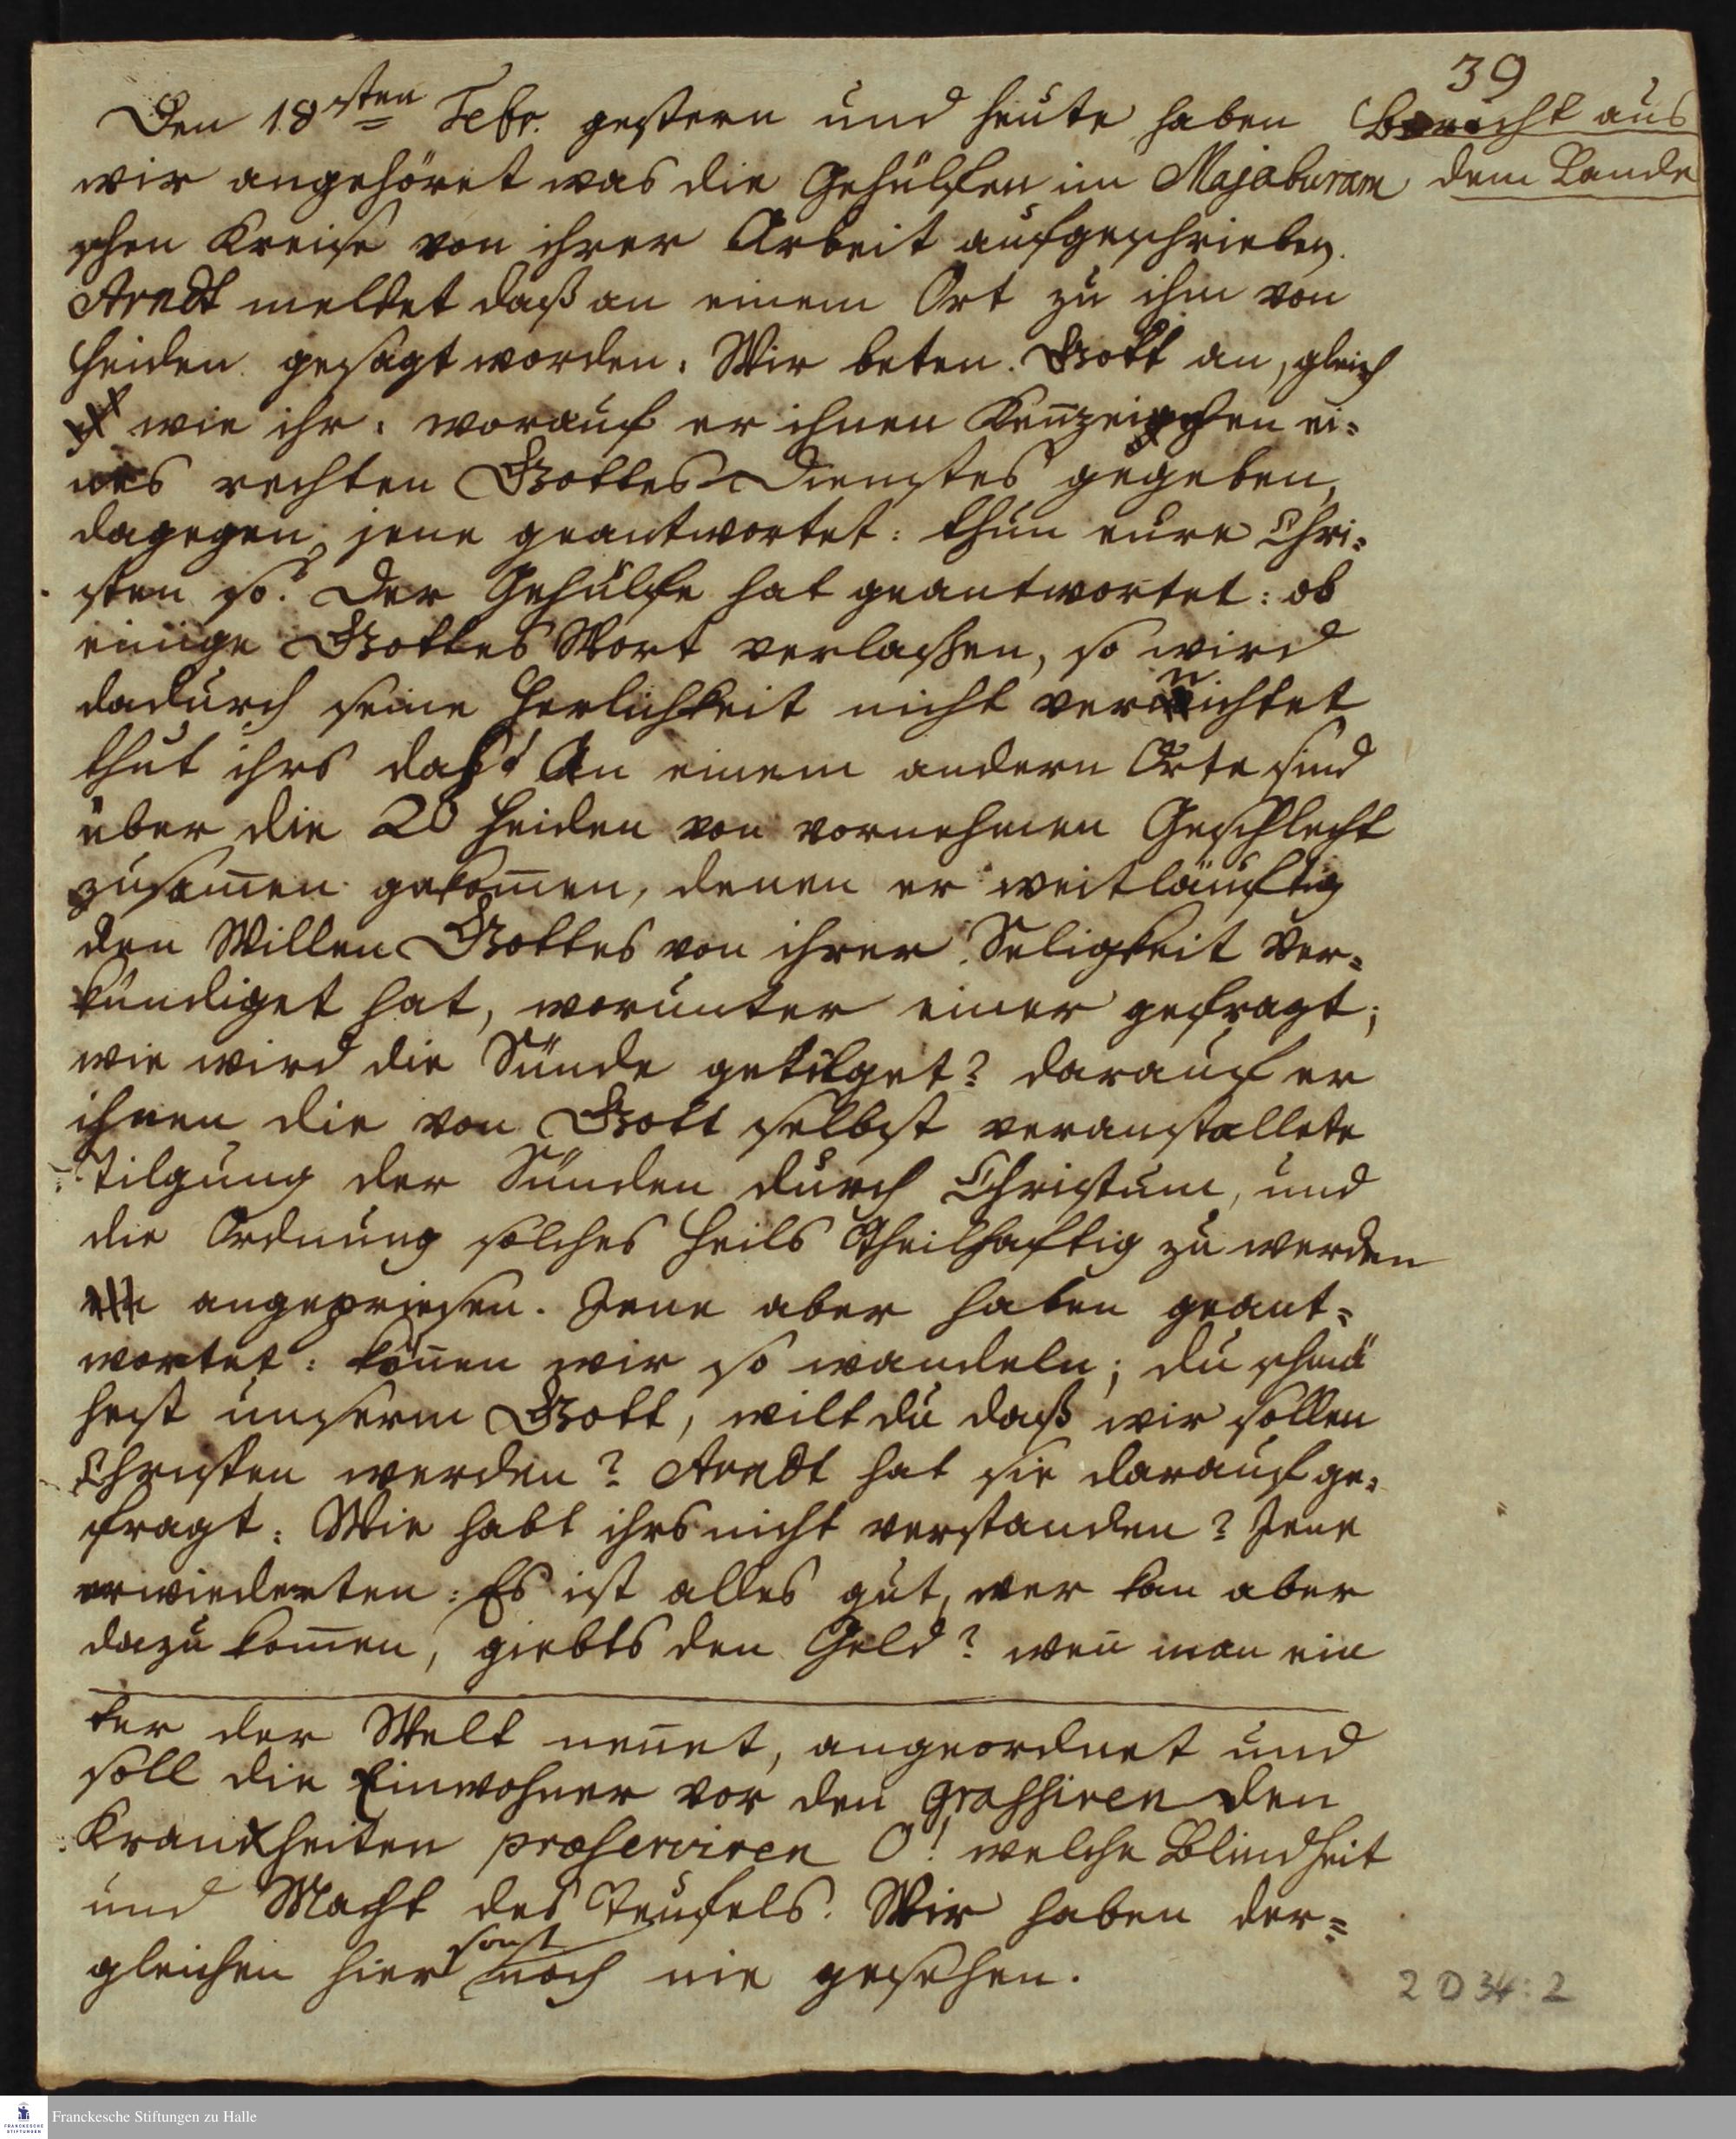 39
Den 18ten Febr. gestern und heute haben
Bericht aus
dem Lande
wir angehöret was die Gehülfen im Majaburam
schen Kreise von ihrer Arbeit aufgeschrieben.
Arndt meldet daß an einem Ort zu ihm von
Heiden gesagt worden: Wir beten Gott an, gleich
wie ihr: worauf er ihnen Kenzeichen ei=
nes rechten Gottes Dienstes gegeben,
dagegen jene geantwortet: thun eure Chri=
sten so? Der Gehülfe hat geantwortet: ob
einige Gottes Wort verlaßen, so wird
dadurch seine Herlichkeit nicht vernichtet
thut ihrs daß! An einem andern Orte sind
über die 20 Heiden von vornehmen Geschlecht
zusam̅en gekom̅en, denen er weitläuftig
den Willen Gottes von ihrer Seligkeit ver=
kündiget hat, worunter einer gefragt;
wie wird die Sünde getilget? darauf er
ihnen die von Gott selbst veranstaltete
Tilgung der Sünden durch Christum, und
die Ordnung solches Heils theilhaftig zu werden
angepriesen. Jene aber haben geant=
wortet: kön̅en wir so wandeln; du schmä
hest unserm Gott, wilt du daß wir sollen
Christen werden? Arndt hat sie darauf ge=
fragt: Wie habt ihrs nicht verstanden? Jene
erwiederten: Es ist alles gut, wer kan aber
dazu kom̅en, giebts den Geld? wen̅ man ein
ter der Welt nen̅et, angeordnet und
soll die Einwohner vor den grassirenden
Krankheiten præserviren O! welche Blindheit
und Macht des Teufels. Wir haben der=
gleichen hier sonst noch nie gesehen.
2 D 34:2
Franckesche Stiftungen zu Halle
FRANCKESCHE
STIFTUNGEN